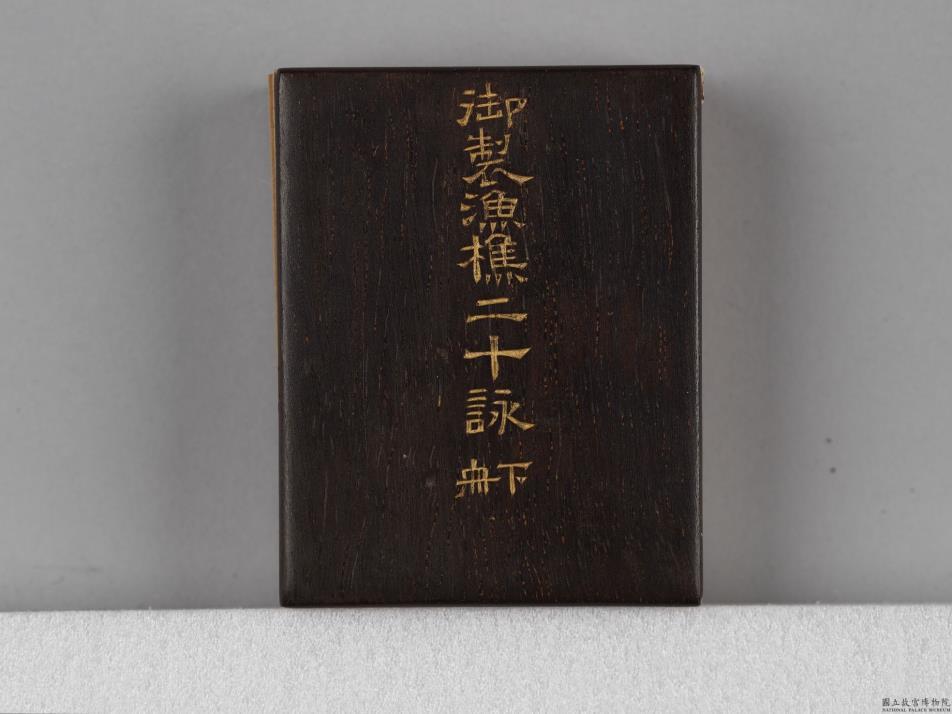 御製漁樵二十詠
下冊
國立故宮博物院
NATIONAL PALACE MUSEUM